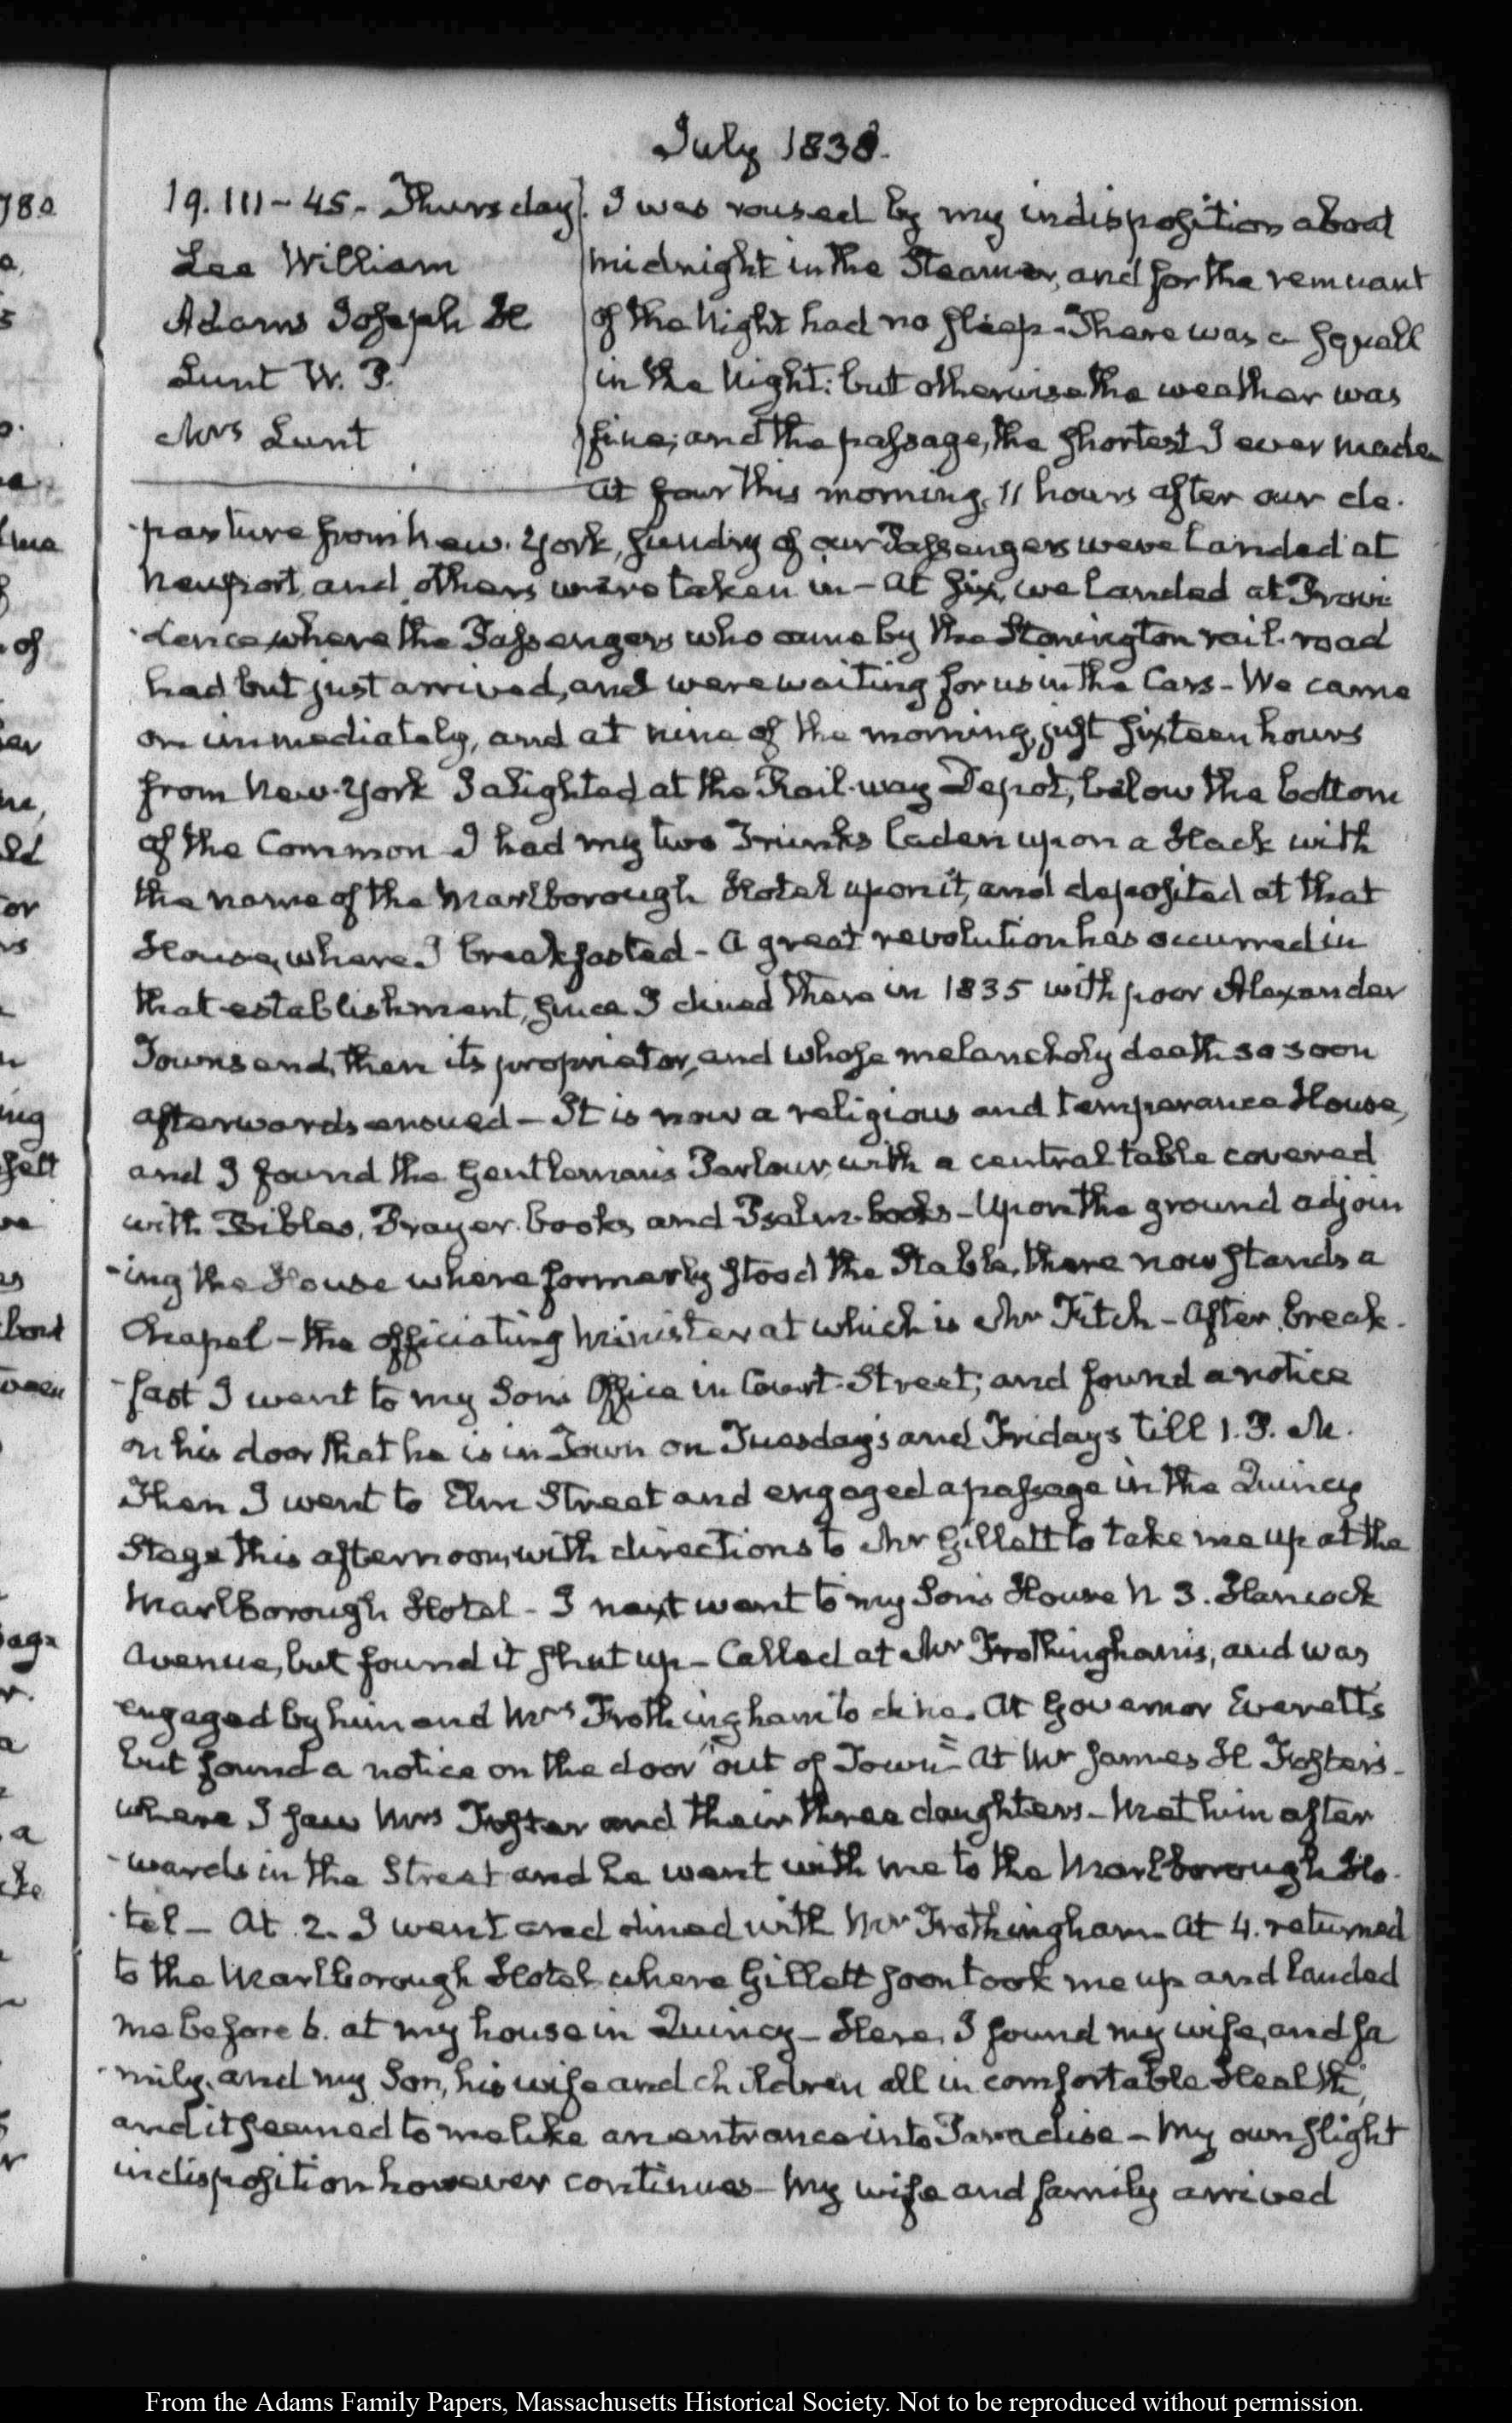 July 1838.
19. III - 45. Thursday.
Lee William
Adams Joseph H
Lunt W. P.
Mrs Lunt
I was roused by my indisposition about
midnight in the Steamer, and for the remnant
of the Night had no sleep - There was a squall
in the Night: but otherwise the weather was
fine; and the passage, the shortest I ever made
At four this morning, 11 hours after our de-
parture from New-York, sundry of our Passengers were landed at
Newport, and others were taken in - At six, we landed at Provi-
dence where the Passengers who came by the Stonington rail-road
had but just arrived, and were waiting for us in the Cars - We came
on immediately, and at nine of the morning, just sixteen hours
from New-York I alighted at the Rail-way Depot, below the bottom
of the Common I had my two Trunks laden upon a Hack with
the name of the Marlborough Hotel upon it, and deposited at that
House, where I breakfasted - A great revolution has occurred in
that establishment, since I dined there in 1835 with poor Alexander
Townsend, then its proprietor, and whose melancholy death so soon
afterwards ensued - It is now a religious and temperance House,
and I found the Gentleman's Parlour with a central table covered
with Bibles, Prayer-books, and Psalm-books - Upon the ground adjoin
-ing the House where formerly stood the Stable, there now stands a
Chapel - the officiating Minister at which is Mr Fitch - After break-
-fast I went to my Son's Office in Court-Street; and found a notice
on his door that he is in Town on Tuesdays and Fridays till 1. P. M.
Then I went to Elm Street and engaged a passage in the Quincy
Stage this afternoon, with directions to Mr Gillett to take me up at the
Marlborough Hotel - I next went to my Son's House N 3. Hancock
Avenue, but found it shut up - Called at Mr Frothingham's, and was
engaged by him and Mrs Frothingham to dine. At Governor Everett's
but found a notice on the door "out of Town" - At Mr James H Foster's -
where I saw Mrs Foster and their three daughters - Met him after
-wards in the Street and he went with me to the Marlborough Ho-
-tel - At 2. I went and dined with Mr Frothingham - At 4. returned
to the Marlborough Hotel where Gillett soon took me up and landed
me before 6. at my house in Quincy - Here, I found my wife, and fa
-mily, and my Son, his wife and children all in comfortable Health,
and it seemed to me like an entrance into Paradise - My own slight
indisposition however continues - My wife and family arrived
780
of
or
ing
From the Adams Family Papers, Massachusetts Historical Society. Not to be reproduced without permission.